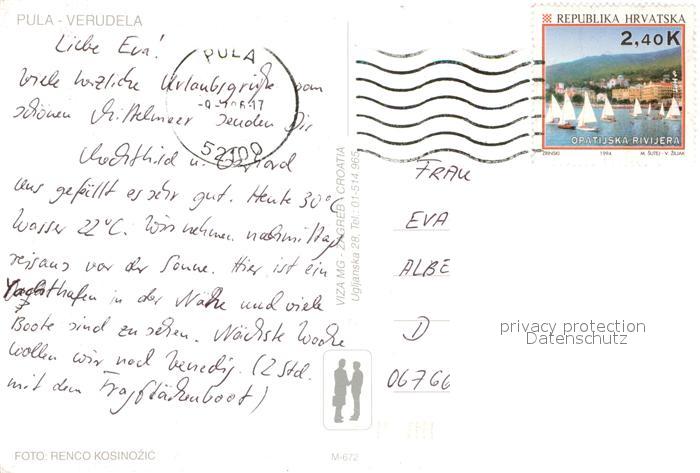 PULA - VERUDELA
Liebe Eva!
Viele herzliche Urlaubsgrüße vom
schönen Mittelmeer senden Dir
Mechthild u. Gerhard
Uns gefällt es sehr gut. Heute 30°C
Wasser 22°C. Wir nehmen nachmittags
reisaus vor der Sonne. Hier ist ein
Yachthafen in der Nähe und viele
Boote sind zu sehen. Nächste Woche
wollen wir nach Venedig. (2 Std.
mit dem Tragflächenboot)
FOTO: RENCO KOSINOŽIC
M-672
VIZA MG - ZAGREB - CROATIA
Ugljanska 28, Tel.: 01-514 965
PULA
52100
REPUBLIKA HRVATSKA
2,40K
OPATIJSKA RIVIJERA
ZRINSKI 1994 M. ŠUTEJ - V. ŽILJAK
FRAU
EVA
ALBE
D
06766
privacy protection
Datenschutz